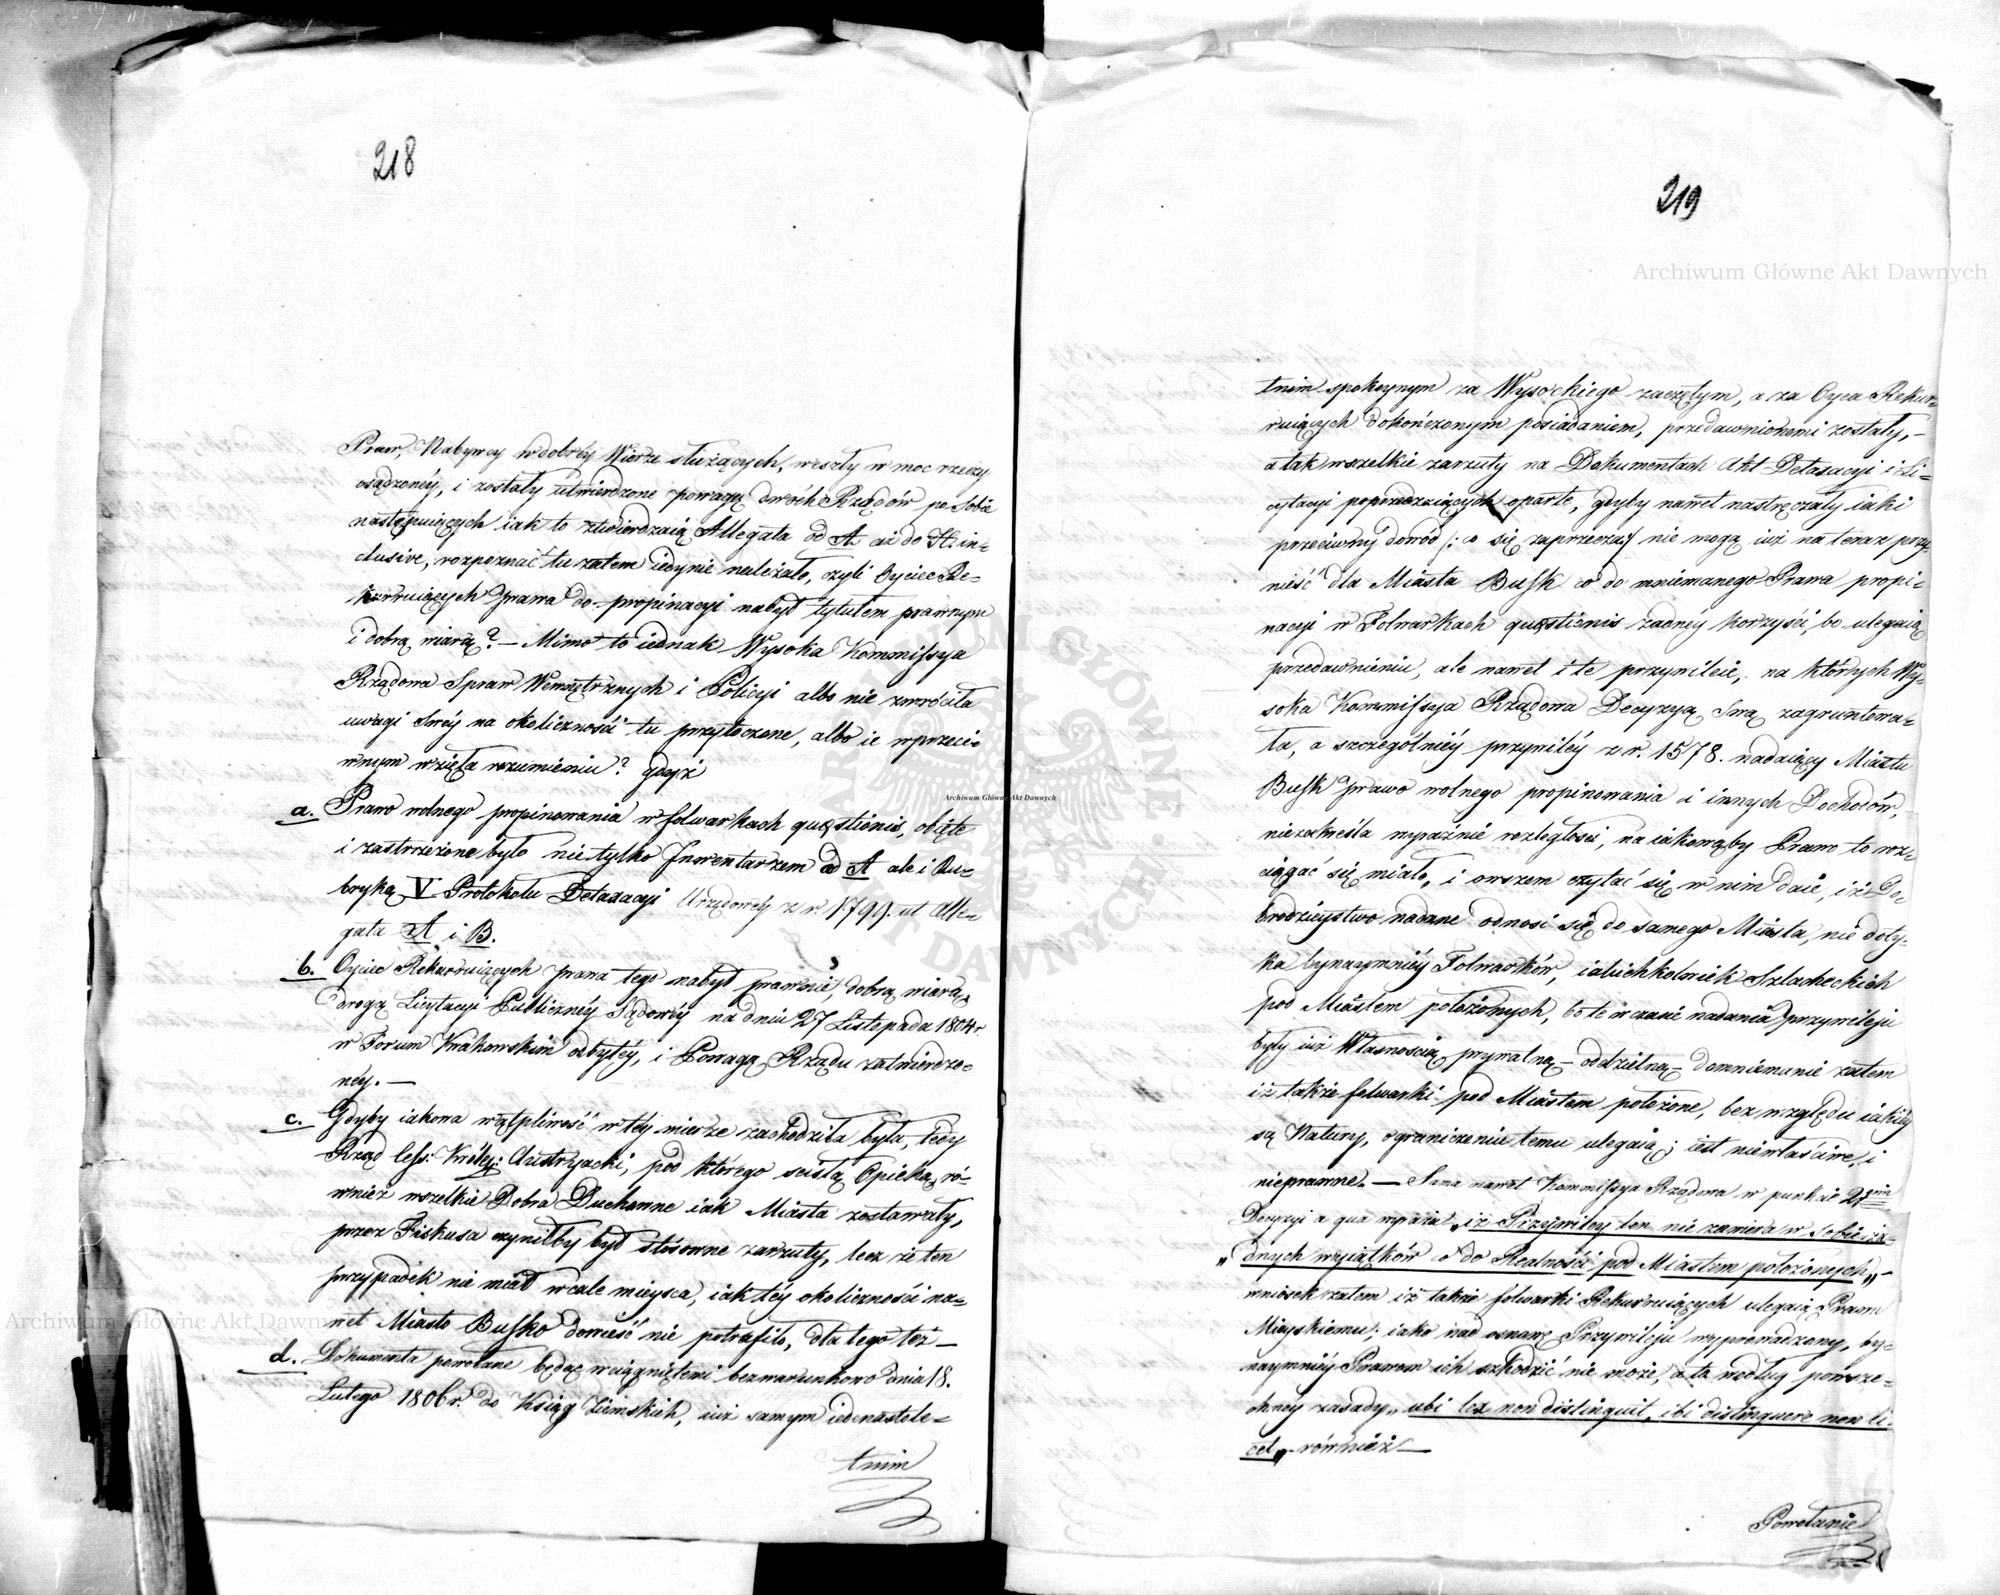 218
Praw, Nabywcy w dobréy Wierze służących, weszły w moc rzeczy
osądzonéy, i zostały utwierdzone powagą dwóch Rządów po Sobie
następuiących iak to stwierdzaią Allegata od A. aż do H. in=
clusive, rozpoznać tu zatem iedynie należało, czyli Oyciec Re=
kurruiących prawa do propinacyi nabył tytułem prawnym
i dobrą wiarą? — Mimo to iednak Wysoka Kommissya
Rządowa Spraw Wewnętrznych i Policyi albo nie zwróciła
uwagi Swéy na okoliczność tu przytoczone, albo ie w przeci=
wnym wzięła rozumieniu? gdyż
a. Prawo wolnego propinowania w folwarkach quæstionis, obięte
i zastrzeżone było nietylko Inwentarzem ad A ale i Ru=
bryką V Protokołu Detaxacyi Urzędowéy z r. 1799. ut Alle=
gata A i B.
b. Oyciec Rekurruiących prawa tego nabył prawnie, dobrą wiarą,
drogą Licytacyi Publicznéy Sądowéy na dniu 27 Listopada 1804 r
w Forum Krakowskim odbytéy, i Powagą Rządu zatwierdzo=
néy. —
c. Gdyby iakowa wątpliwość w téy mierze zachodziła była, tedy
Rząd Cess: Króley: Austryacki, pod którego scisłą Opieką, ró=
wnież wszelkie Dobra Duchowne iak Miasta zostawały,
przez Fiskusa czyniłby był stosowne zarzuty, lecz że ten
przypadek nie miał wcale mieysca, iak téy okoliczności na=
wet Miasto Bussko dowieść nie potrafiło, dla tego też —
d. Dokumenta powołane będąc wciągniętemi bezwarunkowo dnia 18.
Lutego 1806 r. do Ksiąg Ziemskich, iuż samym iedenastole=
tnim
219
tnim spokoynym za Wysockiego zaczętym, a za Oyca Rekur=
ruiących dokończonym posiadaniem, przedawnionemi zostały, —
a tak wszelkie zarzuty na Dokumentach Akt Detaxacyi i Li=
cytacyi poprzedzaiących oparte, gdyby nawet nastręczały iaki
przeciwny dowód /: co się zaprzecza :/ nie mogą iuż na teraz przy=
nieść dla Miasta Bussk co do mniemanego Prawa propi=
nacyi w Folwarkach quæstionis żadnéy korzyści, bo ulegaią
przedawnieniu, ale nawet i te przywileie, na których Wy=
soka Kommissya Rządowa Decyzyą Swą zagruntowa=
ła, a szczególniéy przywiléy z r. 1578. nadaiący Miastu
Bussk prawo wolnego propinowania i innych Dochodów,
niezakreśla wyraźnie rozległości, na iakowąby Prawo to roz=
ciągać się miało, i owszem czytać się w nim daie, iż Do=
brodzieystwo nadane odnosi się do samego Miasta, nie doty=
ka bynaymniéy Folwarków, iakichkolwiek Szlacheckich
pod Miastem położonych, bo te w czasie nadania przywileju
były iuż Własnością prywatną — oddzielną — domniemanie zatem
iż także folwarki pod Miastem położone, bez względu iakiéy
są Natury, ograniczeniu temu ulegaią; iest niewłaściwe, i
nieprawne. — Sama nawet Kommissya Rządowa w punkcie 2gim
Decyzyi a qua wyraża „iż Przywiley ten nie zawiera w Sobie ża=
„dnych wyiątków co do Realności pod Miastem położonych„ —
wniosek zatem iż także folwarki Rekurruiących ulegaią Prawu
Mieyskiemu, iako nad osnowę Przywileju wyprowadzony, by=
naymniéy Prawom ich szkodzić nie może, a to według powsze=
chney zasady „ubi lex non distinguit, ibi distinguere non li=
cet„ — również —
Powołanie
Archiwum Główne Akt Dawnych
Archiwum Główne Akt Dawnych
Archiwum Główne Akt Dawnych
ARCHIWUM GŁÓWNE AKT DAWNYCH